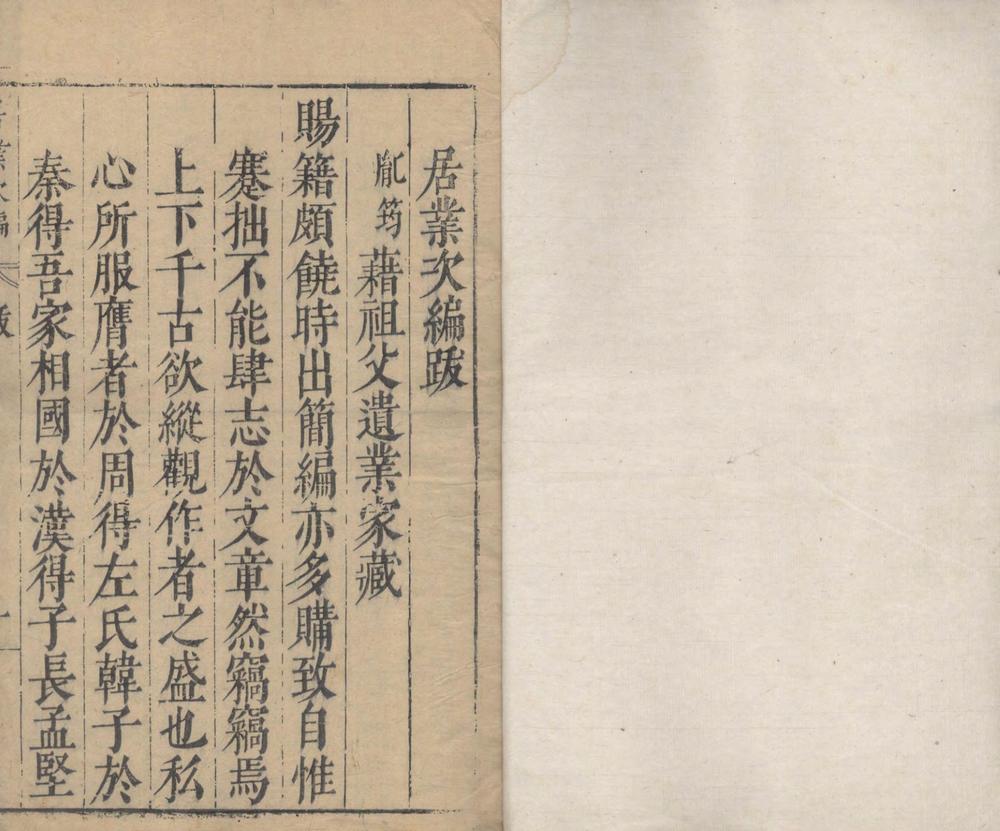 居業次編跋
胤筠藉祖父遺業家藏
賜籍頗饒時出簡編亦多購致自惟
蹇拙不能肆志於文章然竊竊焉
上下千古欲縱觀作者之盛也私
心所服膺者於周得左氏韓子於
秦得吾家相國於漢得子長孟堅
業次編 跋 一